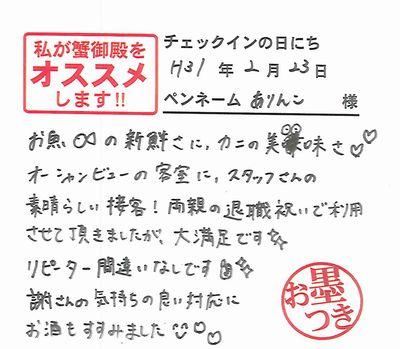 私が蟹御殿を
オススメ
します!!
チェックインの日にち
H31年2月23日
ペンネーム ありんこ 様
お魚の新鮮さに、カニの美味さ♡♡
オーシャンビューの客室に、スタッフさんの
素晴らしい接客！両親の退職祝いで利用
させて頂きましたが、大満足です✨
リピーター間違いなしです✨
謝さんの気持ちの良い対応に
お酒もすすみました
お墨つき